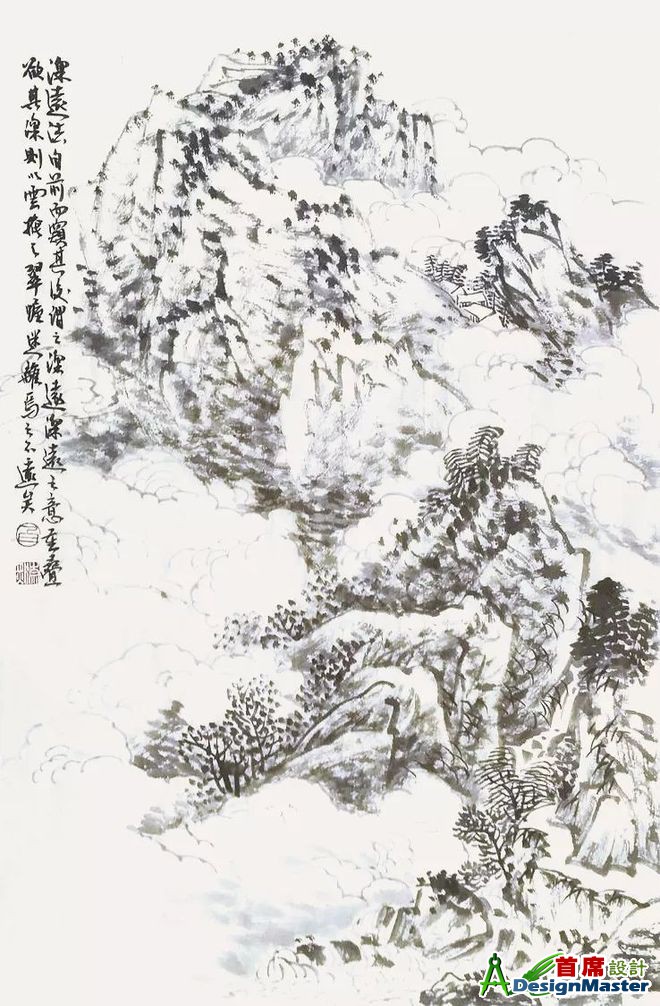 深遠法自前而窺其後謂之深遠深遠之意重疊
欲其深則以雲掩之翠迷離焉之不遠矣
首席設計
ADesignMaster